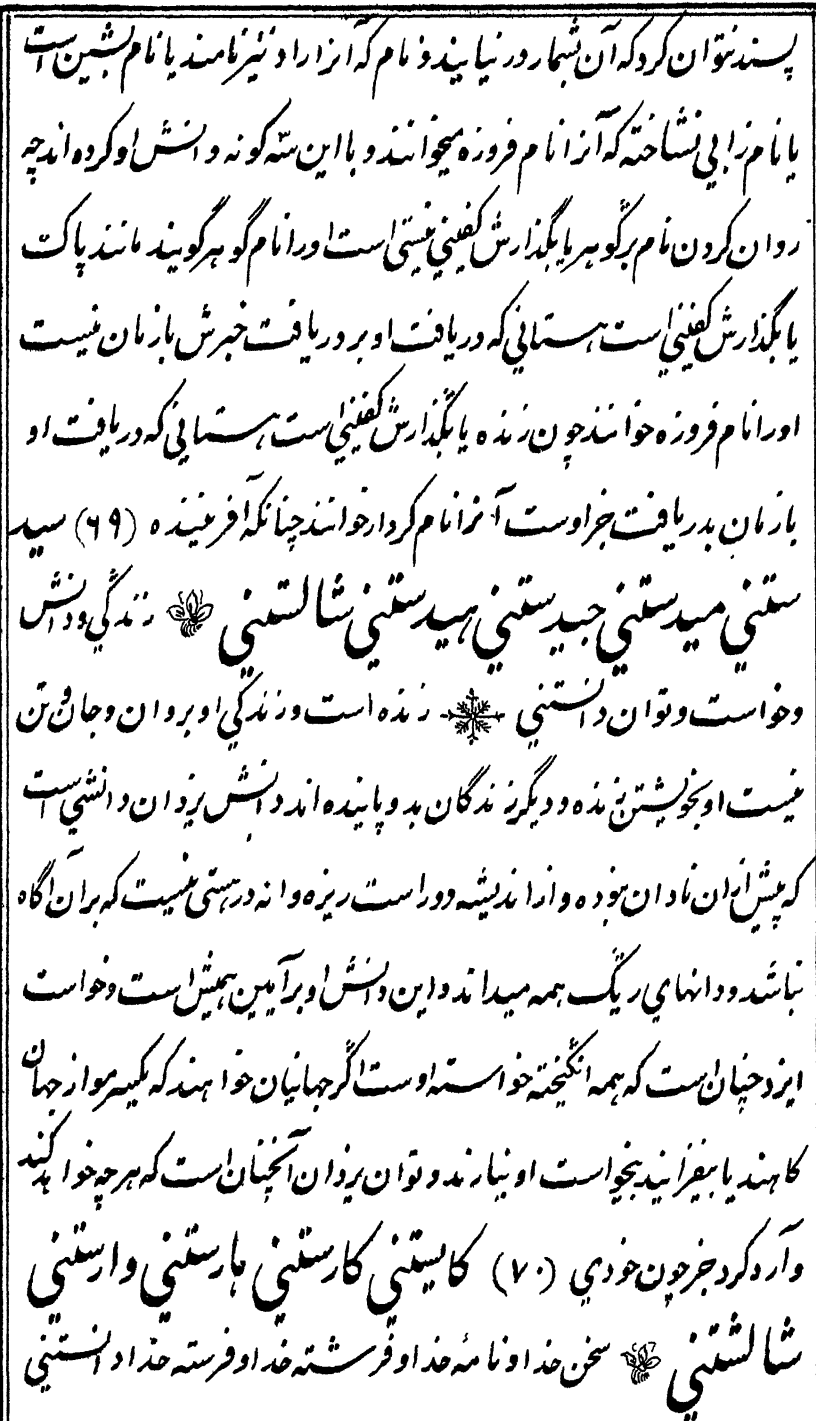 پسند نتوان کرد که آن بشمار در نیایند و نام که آنرا راد نیز نامند یا نام بشین است
یا نام زابی نشاخته که آنرا نام فروزه میخوانند و با این سه کونه دانش او کرده اند چه
روان کردن نام بر گوهر یا بگذارش کفیني نیستی است اورا نام گوهر گویند مانند پاک
یا بگذارش کفیني است هستانی که دریافت او بر دریافت خبرش بازمان نیست
اورا نام فروزه خوانند چون زنده یا بگذارش کفیني است هستانی که دریافت او
بازمان بدریافت جز اوست آنرا نام کردار خوانند چنانکه آفریننده (۶۹) سید
ستني میدستني جبیدستني هیدستني شالستني زندگي و دانش
و خواست و توان دانستني زنده است و زندگي او بروان و جان و تن
نیست او بخویشتن زنده و دیگر زندگان بدو پاینده اند دانش یزدان دانشي است
که پیش ازان نادان نبوده و از اندیشه دور است ریزه وانه در هستی نیست که بران آگاه
نباشد و دانهای ریگ همه میداند و این دانش او بر آیین همیش است و خواست
ایزد چنان است که همه انگیخته خواسته اوست اگر جهانیان خواهند که یکسر مو از جهان
کاهند یا بیفزایند بیخواست او نیارند و توان یزدان آنچنان است که هر چه خواهد کند
و آرد کرد جز چون خودي (۷۰) کایستني کارستني هارستني وارستني
شالشتني سخن خدا و نامه خدا و فرشته خدا و فرسته خدا دانستني